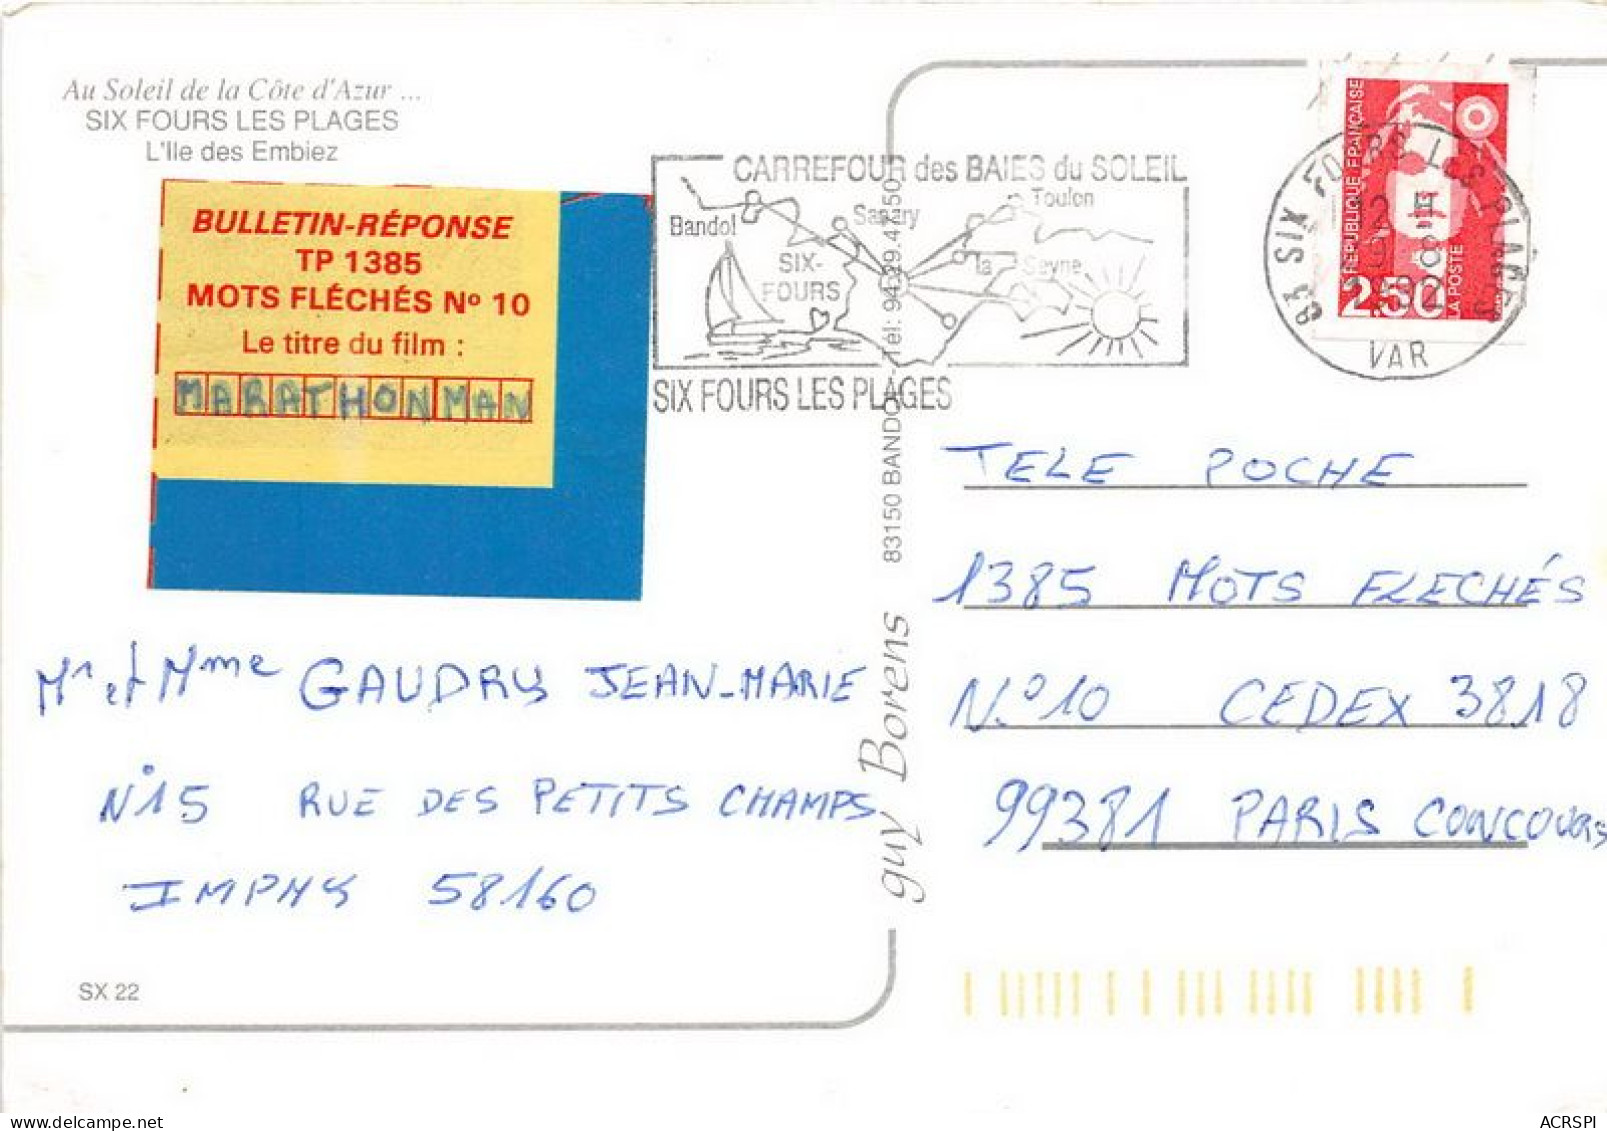 Au Soleil de la Côte d'Azur ...
SIX FOURS LES PLAGES
L'Ile des Embiez
BULLETIN-RÉPONSE
TP 1385
MOTS FLÉCHÉS Nº 10
Le titre du film :
MARATHON MAN
Mr et Mme GAUDRY JEAN-MARIE
N°15 RUE DES PETITS CHAMPS
IMPHY 58160
SX 22
CARREFOUR des BAIES du SOLEIL
Bandol
Sanary
Toulon
SIX-
FOURS
la Seyne
SIX FOURS LES PLAGES
guy Borens
83150 BANDOL - Tél: 94.29.47.50
RÉPUBLIQUE FRANÇAISE
2,50
LA POSTE
83 SIX FOURS LES PLAGES
VAR
TELE POCHE
1385 MOTS FLECHÉS
N.°10 CEDEX 3818
99381 PARIS CONCOURS
ACRSPI